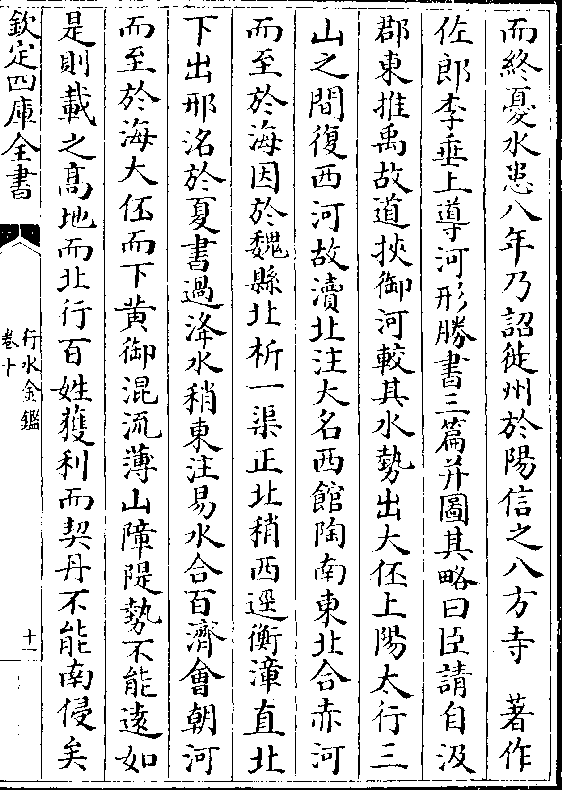 而終憂水患八年乃詔徙州於陽信之八方寺　著作
佐郎李垂上導河形勝書三篇并圖其略曰臣請自汲
郡東推禹故道挾御河較其水勢出大伾上陽太行三
山之間復西河故瀆北注大名西館陶南東北合赤河
而至於海因於魏縣北析一渠正北稍西逕衡漳直北
下出邢洺於夏書過洚水稍東注易水合百濟會朝河
而至於海大伾而下黄御混流薄山障隄勢不能逺如
是則載之髙地而北行百姓獲利而契丹不能南侵矣
欽定四庫全書
行水金鑑
卷十
十一